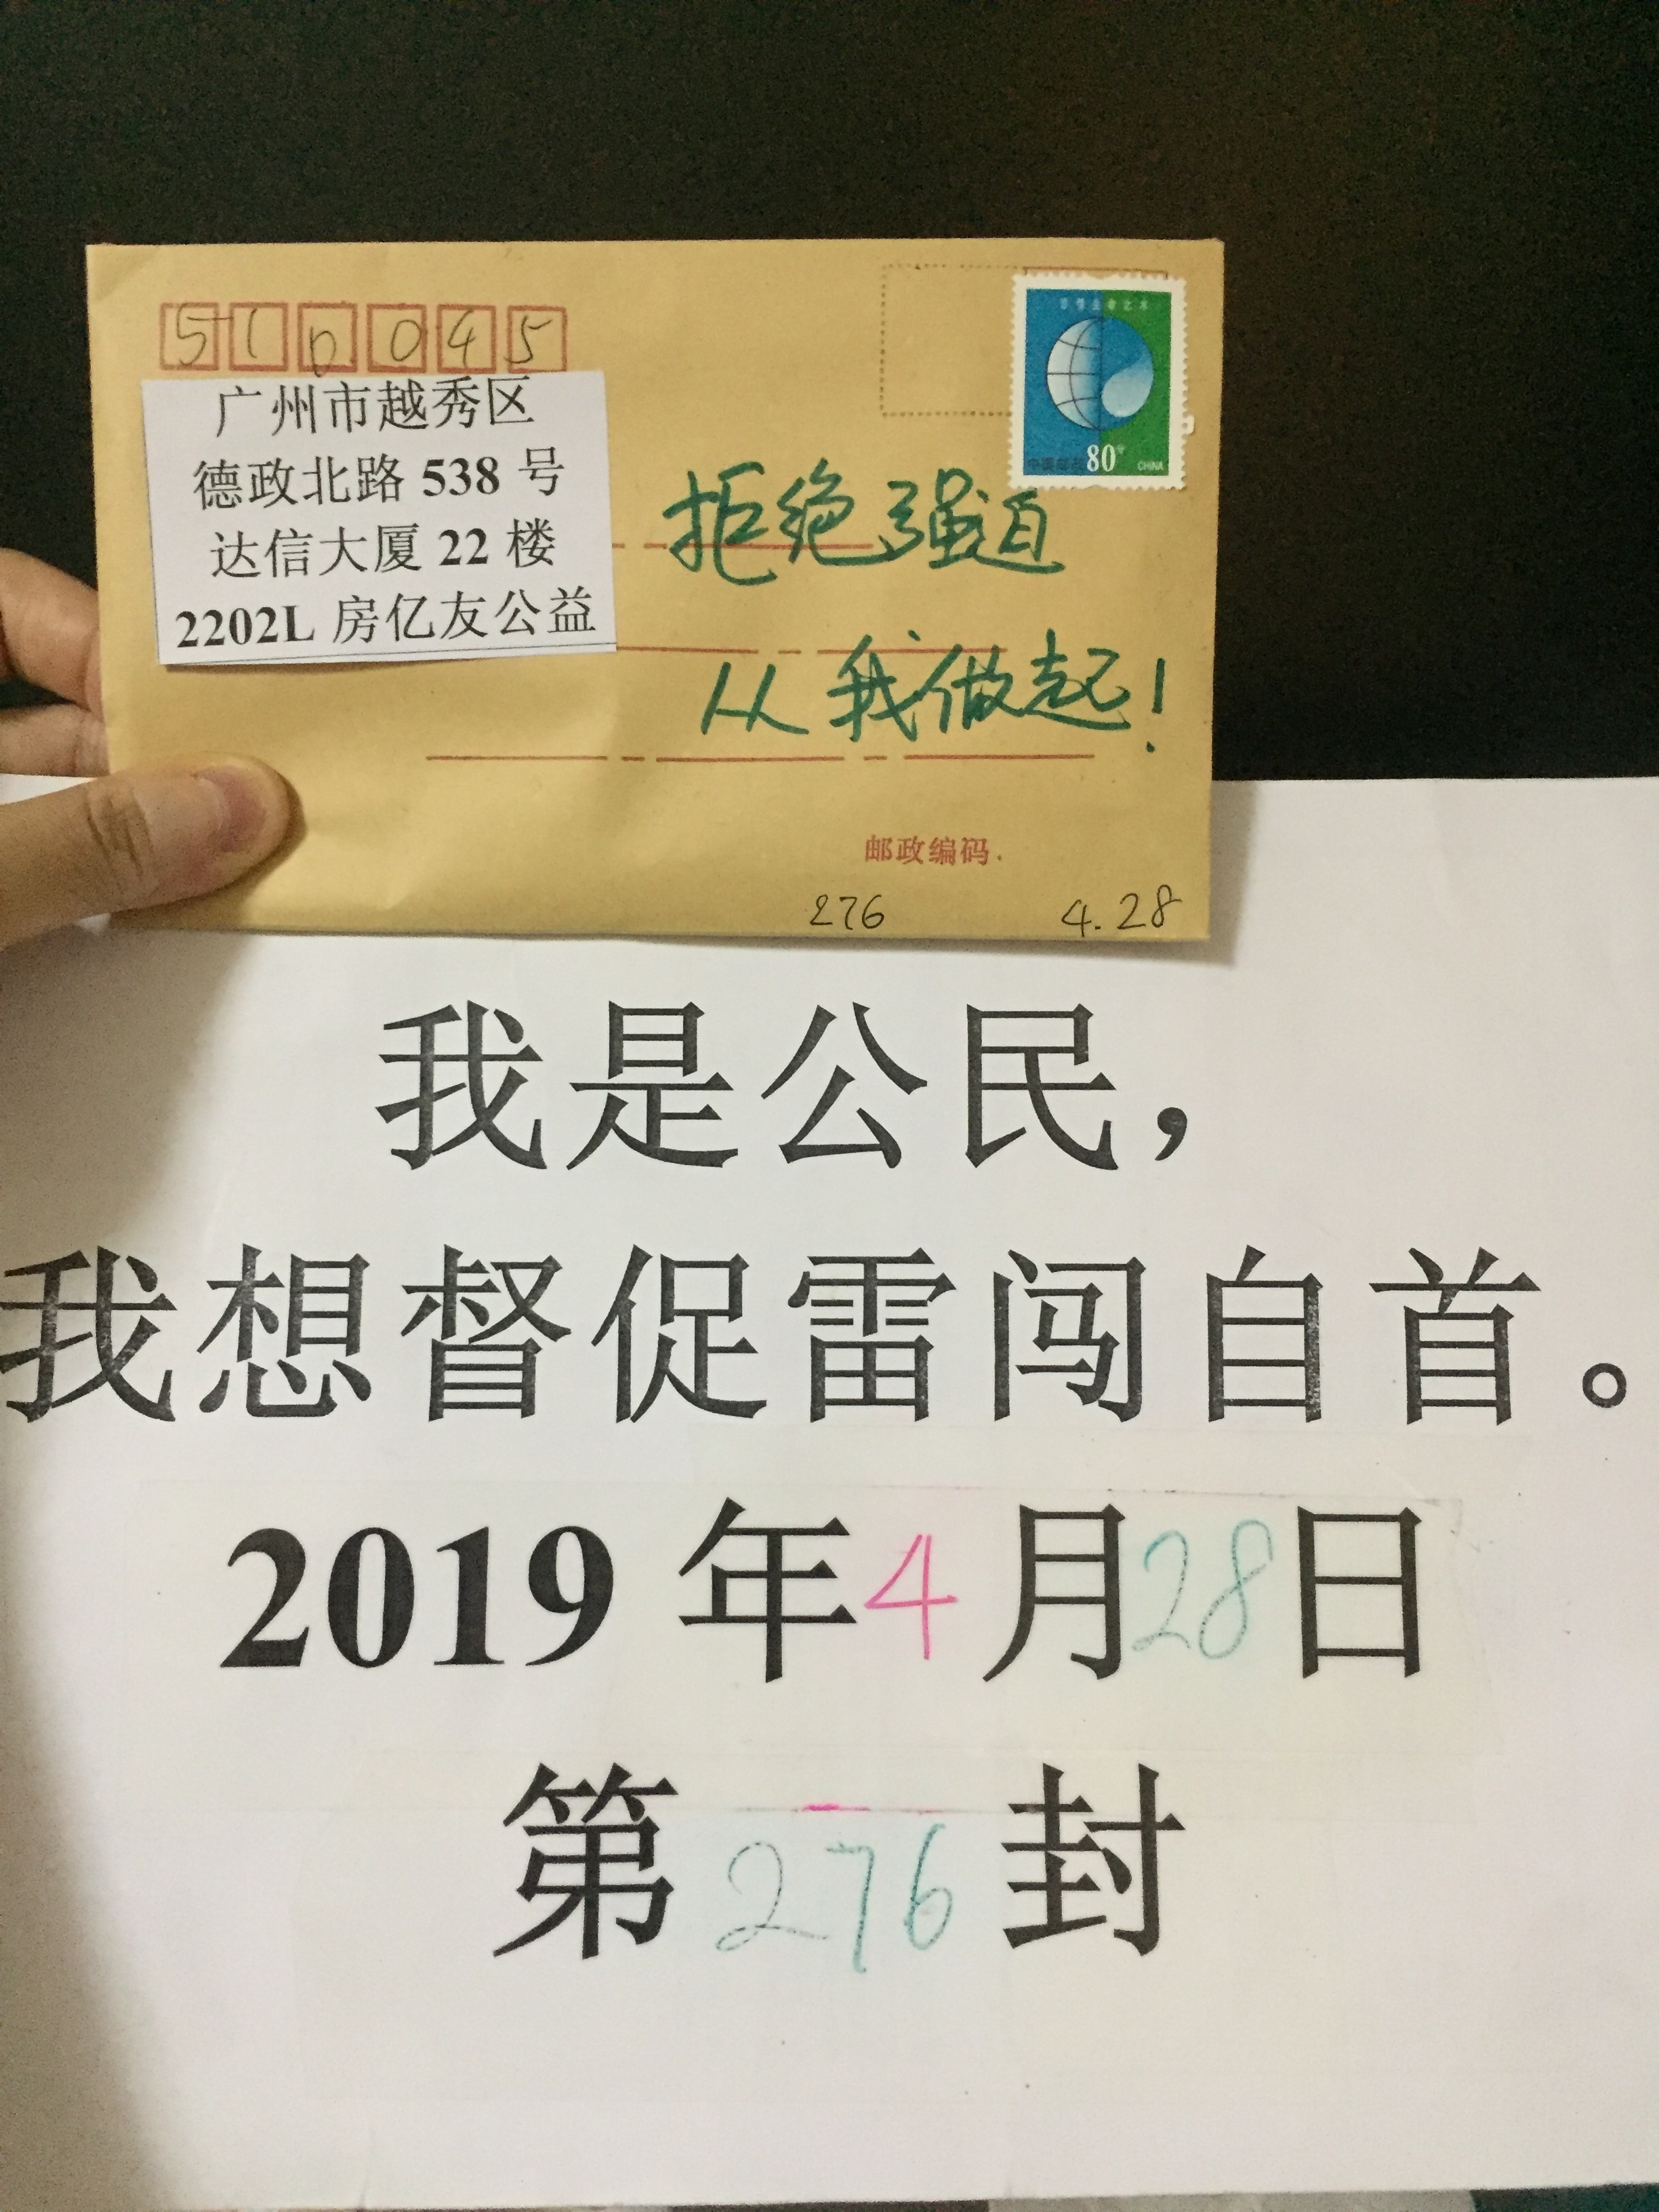 510045
广州市越秀区
德政北路 538 号
达信大厦 22 楼
2202L 房亿友公益
80
CHINA
拒绝强迫
从我做起!
邮政编码.
276 4.28
我是公民，
我想督促雷闯自首。
2019 年 4 月 28 日
第 276 封